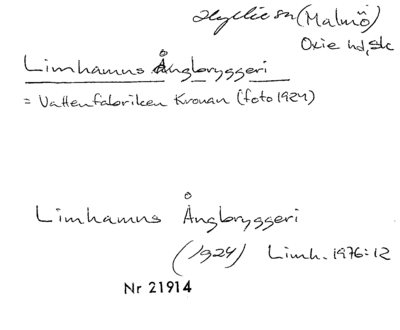 Hyllie sn (Malmö)
Oxie hd, Sk
Limhamns Ångbryggeri
= Vattenfabriken Kronan (foto 1924)
Limhamns Ångbryggeri
(1924) Limh. 1976:12
Nr 21914